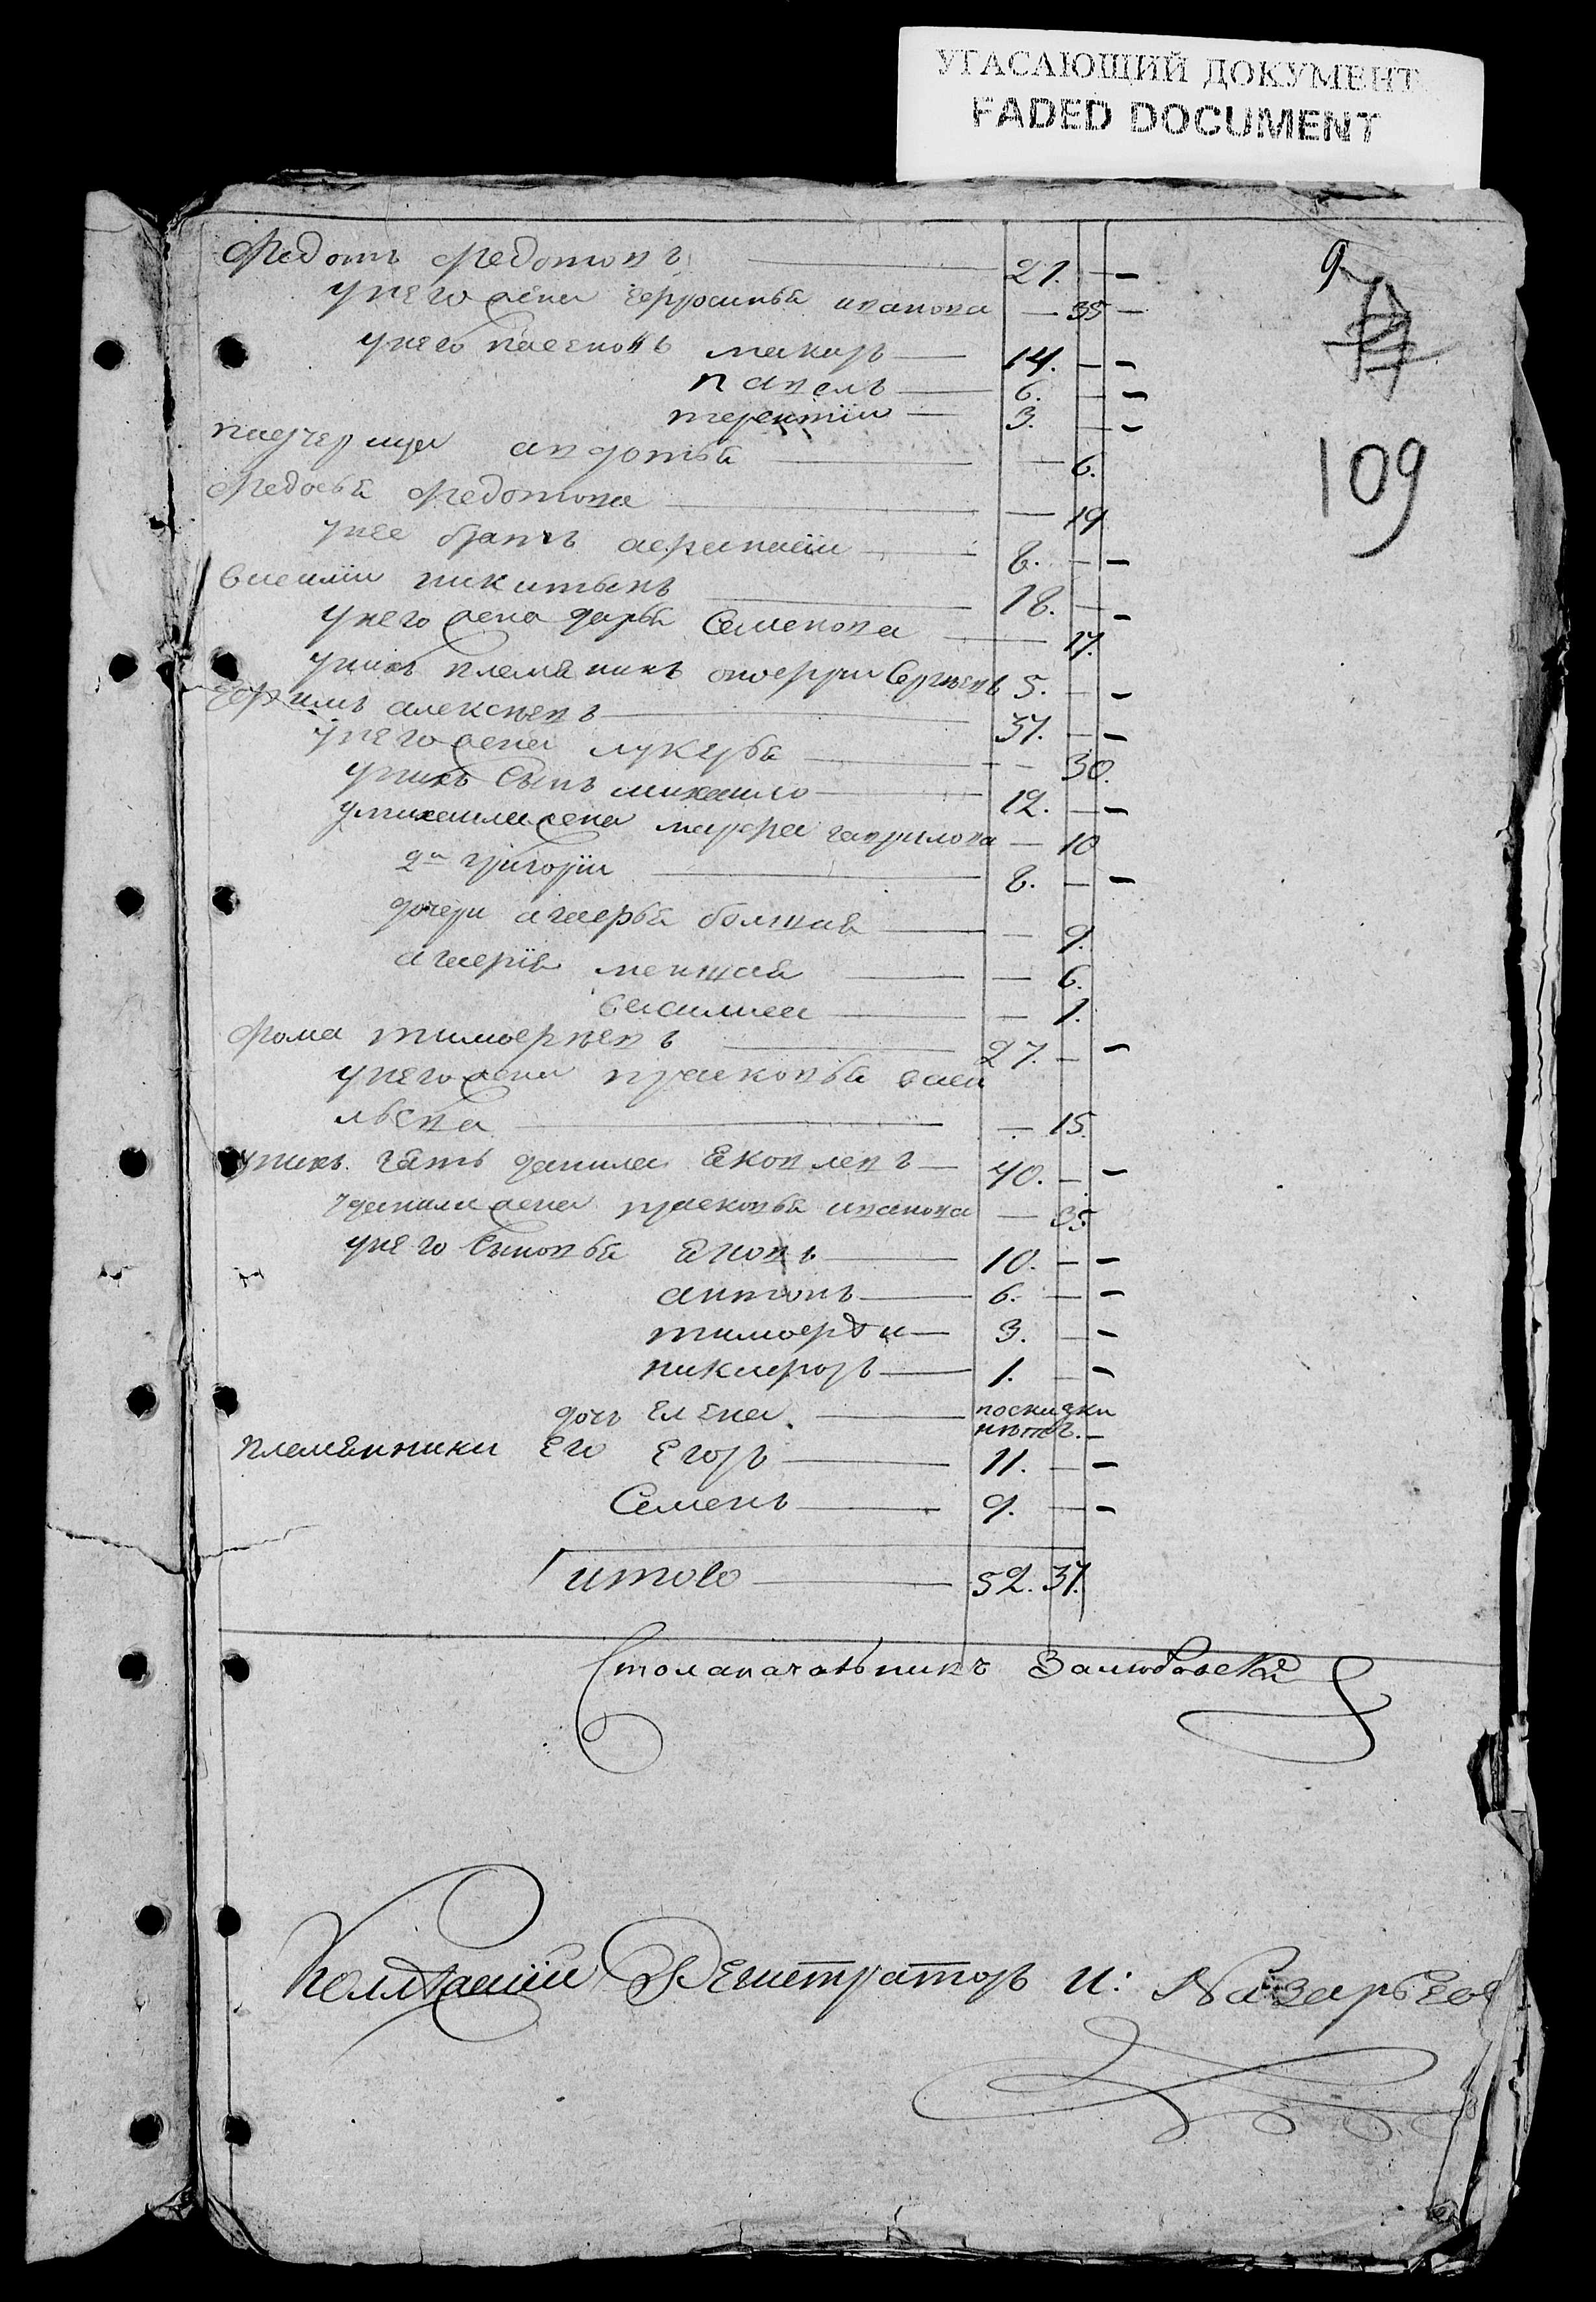 УГАСАЮЩИЙ ДОКУМЕНТ
FADED DOCUMENT
9
109
Федотъ Федотовъ — 21. — —
У него жена Ефросинья иванова — 35 —
У него пасенокъ макаръ — 14. — —
павелъ — 6. — —
терентіи — 3. — —
падчерица авдотья — — 6.
Федосья Федотова — — 19
У нее братъ афанасіи — 8. — —
василіи никитинъ — 18. — —
У него жена дарья Семенова — — 17.
У нихъ племяникъ Сергѣевъ 5. — —
Ефимъ алексѣевъ — 37. — —
У него жена лукерья — — 30.
У нихъ Сынъ михаило — 12. — —
У михаила жена марфа гаврилова — 10
2й григоріи — 8. — —
дочери агафья болшая — — 9.
агафія меншая — — 6.
василиса — — 1.
Фома тимофѣевъ — 27. — —
У него жена прасковья васи
льева — — 15.
У нихъ зять данила яковлевъ — 40. — —
У данилы жена прасковья иванова — 35.
У него Сыновья яковъ — 10. — —
антонъ — 6. — —
тимофеи — 3. — —
никифоръ — 1. — —
дочь Елена — поскаски
нѣтъ. —
племянники Его Егоръ — 11. — —
Семенъ — 9. — —
итого — 52. 37.
Столаначальникъ
Регистраторъ И: Назарьев